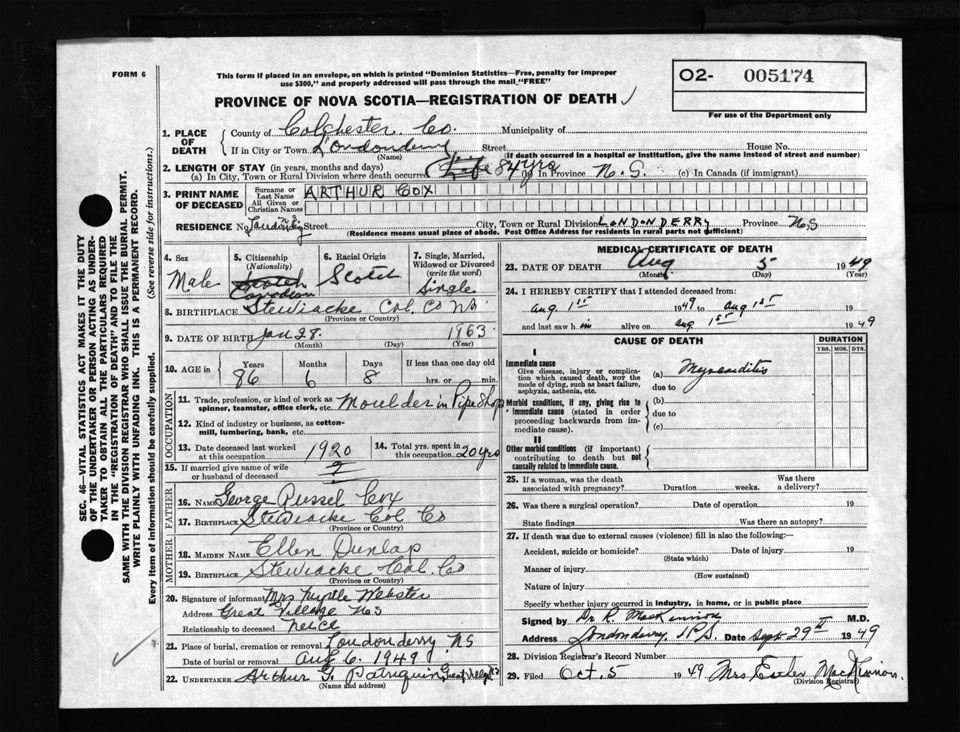 FORM 6
This form if placed in an envelope, on which is printed "Dominion Statistics—Free, penalty for improper
use $300," and properly addressed will pass through the mail "FREE"
O2- 005174
For use of the Department only
PROVINCE OF NOVA SCOTIA—REGISTRATION OF DEATH
1. PLACE OF DEATH
County of Colchester Co. Municipality of
If in City or Town Londonderry Street House No.
(Name) (If death occurred in a hospital or institution, give the name instead of street and number)
2. LENGTH OF STAY (in years, months and days)
(a) In City, Town or Rural Division where death occurred Life 84 yrs (b) In Province N.S. (c) In Canada (if immigrant)
3. PRINT NAME OF DECEASED
Surname or Last Name ARTHUR COX
All Given or Christian Names
RESIDENCE No. Londonderry N.S. Street City, Town or Rural Division LONDONDERRY Province N.S
(Residence means usual place of abode. Post Office Address for residents in rural parts not sufficient)
4. Sex
Male
5. Citizenship (Nationality)
Scotch
Canadian
6. Racial Origin
Scotch
7. Single, Married, Widowed or Divorced (write the word)
Single
8. BIRTHPLACE Stewiacke Col. Co NS
(Province or Country)
9. DATE OF BIRTH Jan 28. 1963
(Month) (Day) (Year)
10. AGE in
Years Months Days If less than one day old
86 6 8 hrs. or min.
OCCUPATION
11. Trade, profession, or kind of work as spinner, teamster, office clerk, etc. Moulder in Pipe Shop
12. Kind of industry or business, as cotton-mill, lumbering, bank, etc.
13. Date deceased last worked at this occupation 1920
14. Total yrs. spent in this occupation 20 yrs
15. If married give name of wife or husband of deceased
FATHER
16. NAME George Russel Cox
17. BIRTHPLACE Stewiacke Col Co
(Province or Country)
MOTHER
18. MAIDEN NAME Ellen Dunlap
19. BIRTHPLACE Stewiacke Col. Co
(Province or Country)
20. Signature of informant Mrs Myrtle Webster
Address Great Village N.S
Relationship to deceased neice
21. Place of burial, cremation or removal Londonderry NS
Date of burial or removal Aug 6. 1949
22. UNDERTAKER Arthur G. Patriquin Great Village N.S
(Name and address)
MEDICAL CERTIFICATE OF DEATH
23. DATE OF DEATH Aug 5 1949
(Month) (Day) (Year)
24. I HEREBY CERTIFY that I attended deceased from:
Aug. 1st 1949 to Aug 1st 19
and last saw h im alive on Aug 1st 1949
CAUSE OF DEATH
DURATION
YRS. MOS. DYS.
I
Immediate cause
Give disease, injury or complication which caused death, NOT the mode of dying, such as heart failure, asphyxia, asthenia, etc.
(a) Myocarditis
due to
Morbid conditions, if any, giving rise to immediate cause (stated in order proceeding backwards from immediate cause).
(b)
due to
(c)
II
Other morbid conditions (if important) contributing to death but not causally related to immediate cause.
25. If a woman, was the death associated with pregnancy? Duration weeks. Was there a delivery?
26. Was there a surgical operation? Date of operation 19
State findings Was there an autopsy?
27. If death was due to external causes (violence) fill in also the following:—
Accident, suicide or homicide? Date of injury 19
(State which)
Manner of injury
(How sustained)
Nature of injury
Specify whether injury occurred in industry, in home, or in public place
Signed by Dr R. MacKinnon M.D.
Address Londonderry, Date Sept 29th 1949
28. Division Registrar's Record Number
29. Filed Oct. 5 1949 Mrs Esther MacKinnon.
(Division Registrar)
SEC. 46—VITAL STATISTICS ACT MAKES IT THE DUTY
OF THE UNDERTAKER OR PERSON ACTING AS UNDER-
TAKER TO OBTAIN ALL THE PARTICULARS REQUIRED
IN THE "REGISTRATION OF DEATH" AND TO FILE THE
SAME WITH THE DIVISION REGISTRAR WHO SHALL ISSUE THE BURIAL PERMIT.
WRITE PLAINLY WITH UNFADING INK. THIS IS A PERMANENT RECORD.
Every item of information should be carefully supplied. (See reverse side for instructions.)